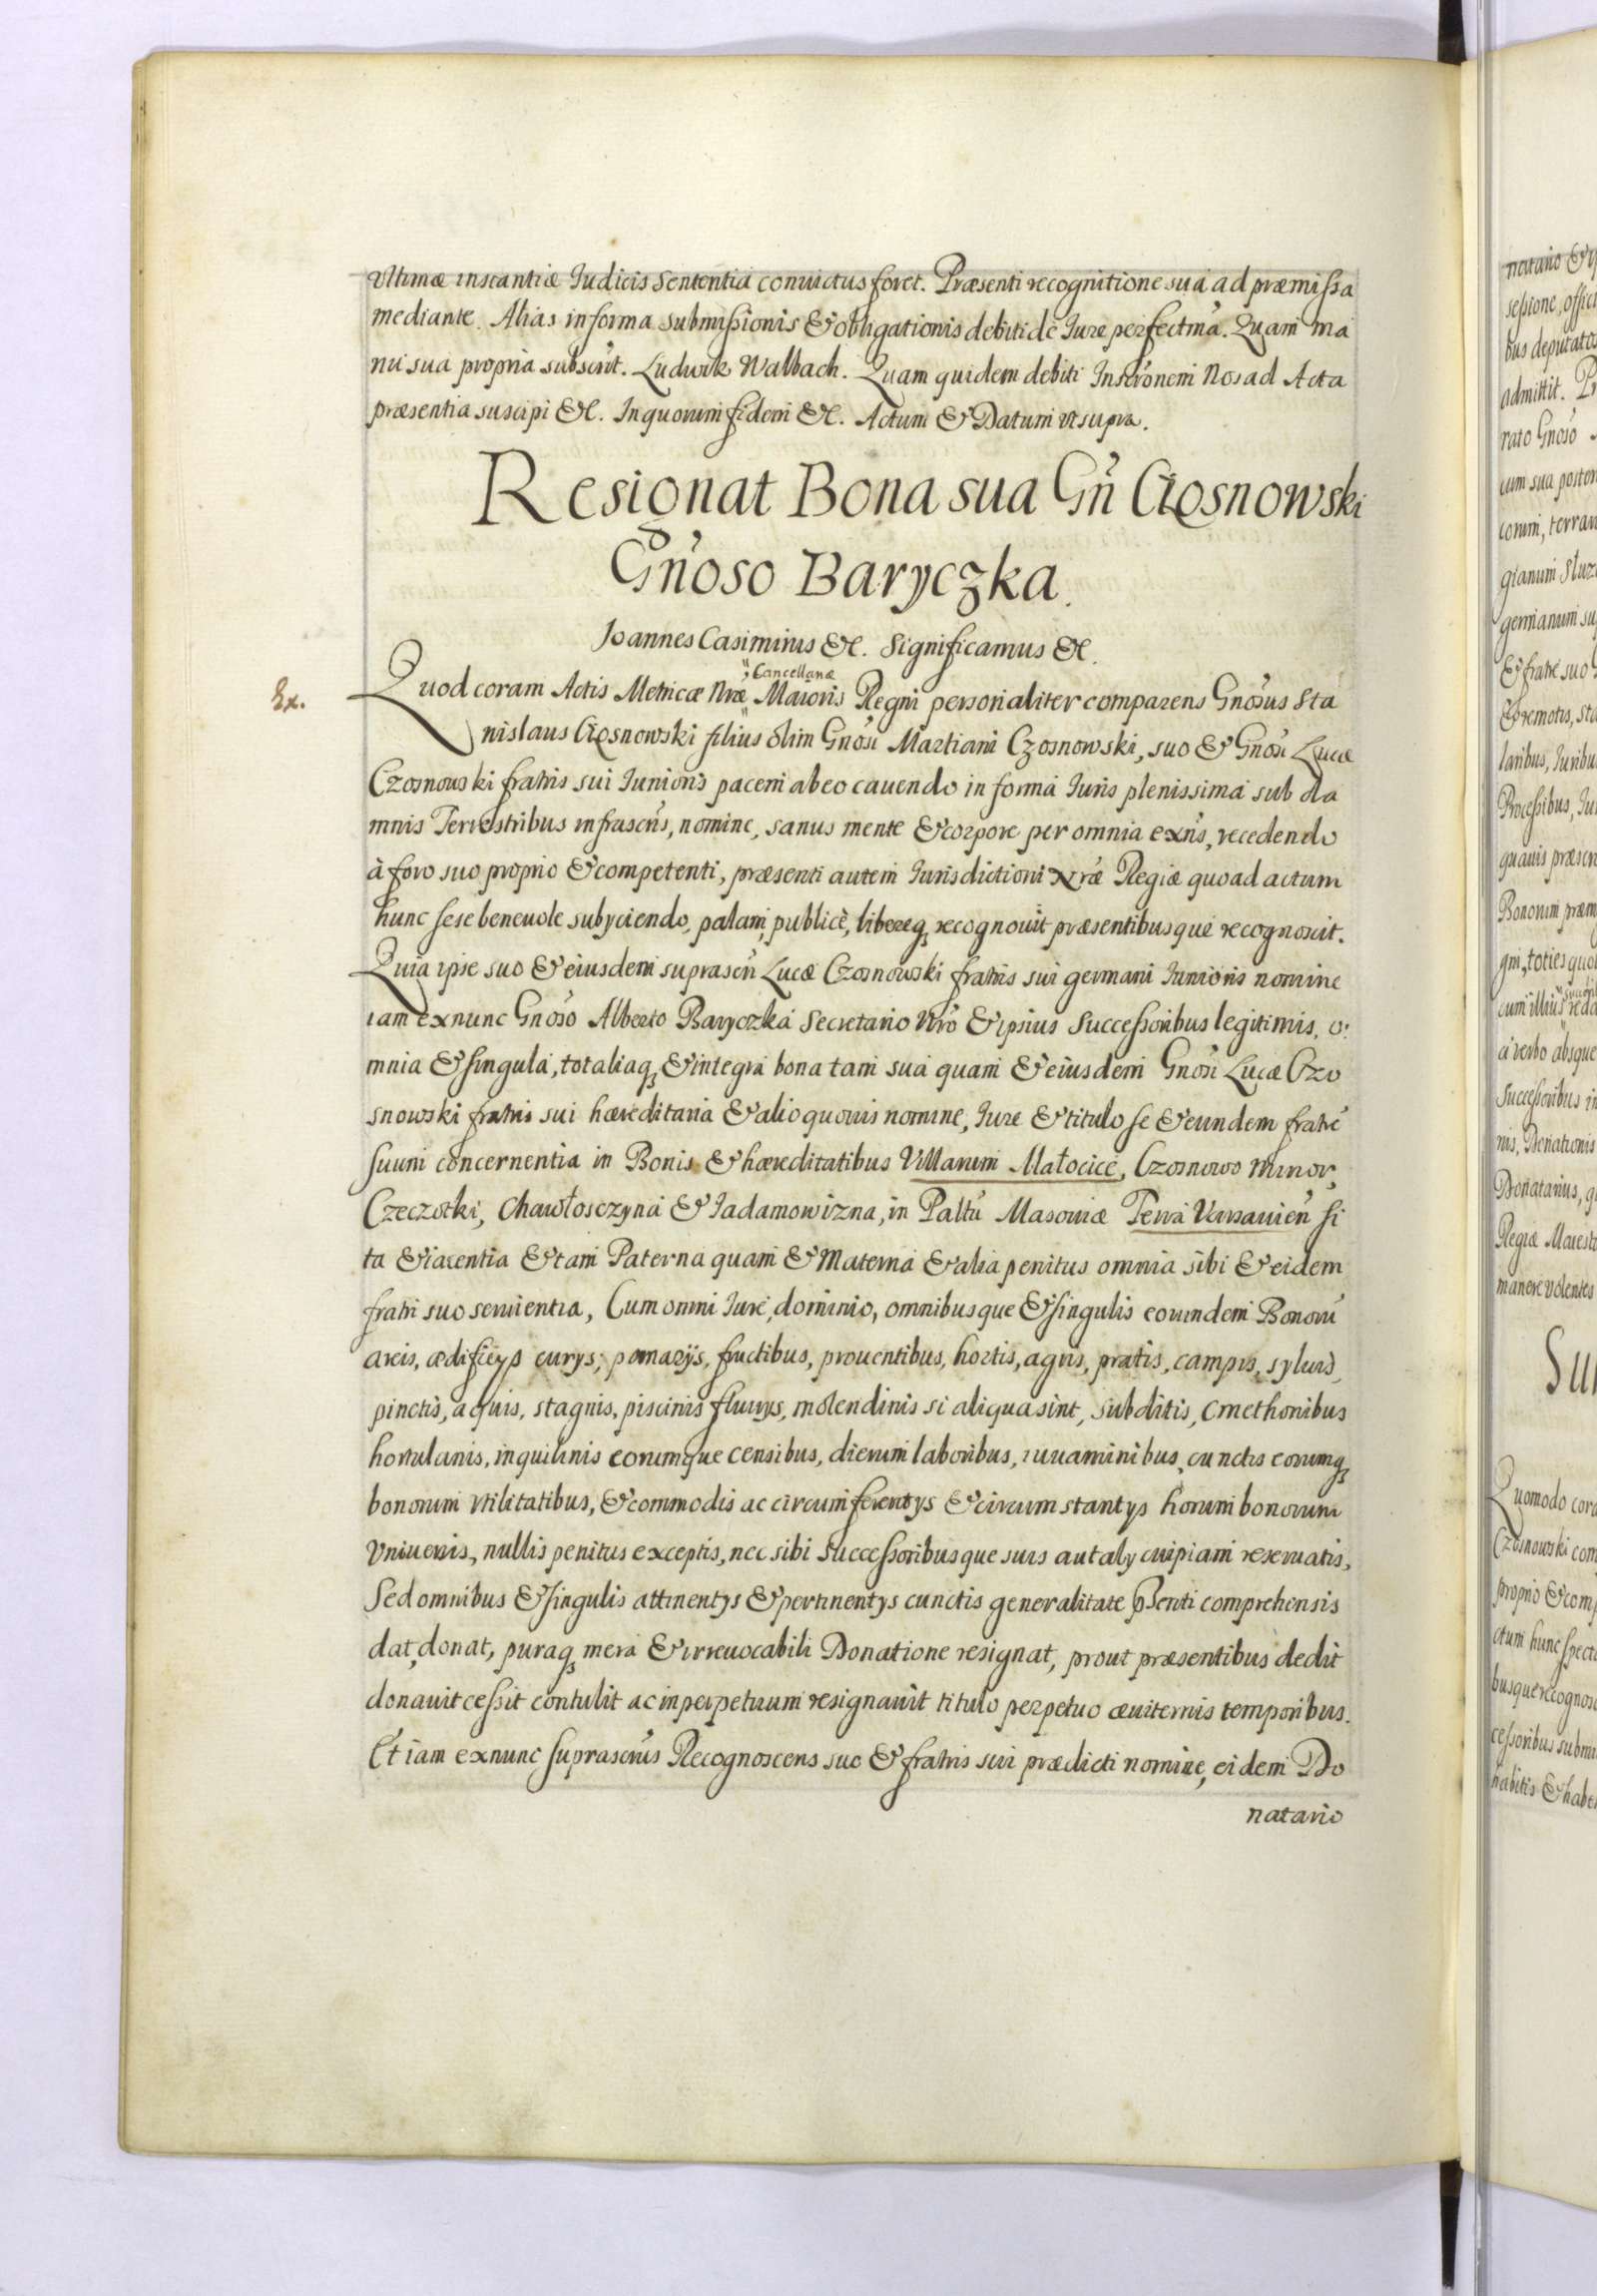 Ultimæ instantiæ Iudicis Sententia conuictus foret. Præsenti recognitione sua ad præmissa
mediante. Alias in forma submissionis & obligationis debiti de Iure perfectma. Quam ma
nu sua propria subscrit. Ludwik Walbach. Quam quidem debiti Inscronem Nos ad Acta
præsentia suscipi &c. In quorum fidem &c. Actum & Datum ut supra.
Resignat Bona sua Gn Czosnowski
Gnoso Baryczka.
Joannes Casimirus &c. Significamus &c.
Ex.
Cancellariæ
Quod coram Actis Metricæ Nræ Maioris Regni personaliter comparens Gnosus Sta
nislaus Czosnowski filius olim Gnosi Martiani Czosnowski, suo & Gnosi Lucæ
Czosnowski fratris sui Iunioris pacem ab eo cauendo in forma Iuris plenissima sub da
mnis Terrestribus infrascris, nomine, sanus mente & corpore per omnia exns, recedendo
à foro suo proprio & competenti, præsenti autem Iurisdictioni Nræ Regiæ quo ad actum
hunc sese beneuole subyciendo, palam, publicè, libereq recognouit præsentibusque recognoscit.
Quia ipse suo & eiusdem suprascri Lucæ Czosnowski fratris sui germani Iunioris nomine
iam exnunc Gnoso Alberto Baryczka Secretario Nro & ipsius Successoribus legitimis, o:
mnia & singula, totaliaq & integra bona tam sua quam & eiusdem Gnosi Lucæ Czo
snowski fratris sui hæreditaria & alio quouis nomine, Iure & titulo se & eundem fratre
suum concernentia in Bonis & hæreditatibus Villarum Małocice, Czosnowo minor,
Czeczotki, Chawłosczyna & Iadamowizna, in Paltu Masouiæ Terra Varsauien si
ta & iacentia & tam Paterna quam & Materna & alia penitus omnia sibi & eidem
fratri suo seruientia, Cum omni Iure, dominio, omnibusque & singulis eorundem Bonoru
areis, ædificijs curys, pomarijs, fructibus, prouentibus, hortis, agris, pratis, campis, syluis,
pinetis, aquis, stagnis, piscinis fluuys, molendinis si aliqua sint, subditis, Cmethonibus
hortulanis, inquilinis eorumque censibus, dierum laboribus, iuuaminibus, cunctis eorumq
bonorum utilitatibus, & commodis ac circumferentys & circumstantys horum bonorum
Uniuersis, nullis penitus exceptis, nec sibi Successoribusque suis aut aly cuipiam reseruatis,
Sed omnibus & singulis attinentys & pertinentys cunctis generalitate psenti comprehensis
dat, donat, puraq mera & irreuocabili Donatione resignat, prout præsentibus dedit
donauit cessit contulit ac in perpetuum resignauit titulo perpetuo æuiternis temporibus.
Et iam exnunc suprascrus Recognoscens suo & fratris sui prædicti nomine, eidem Do
natario